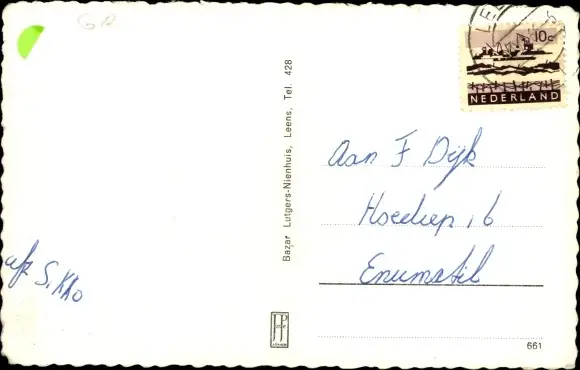 GR
10c
NEDERLAND
Bazar Lutgers-Nienhuis, Leens, Tel. 428
Aan F Dijk
Hoediep 16
Enumatil
Sikko
661